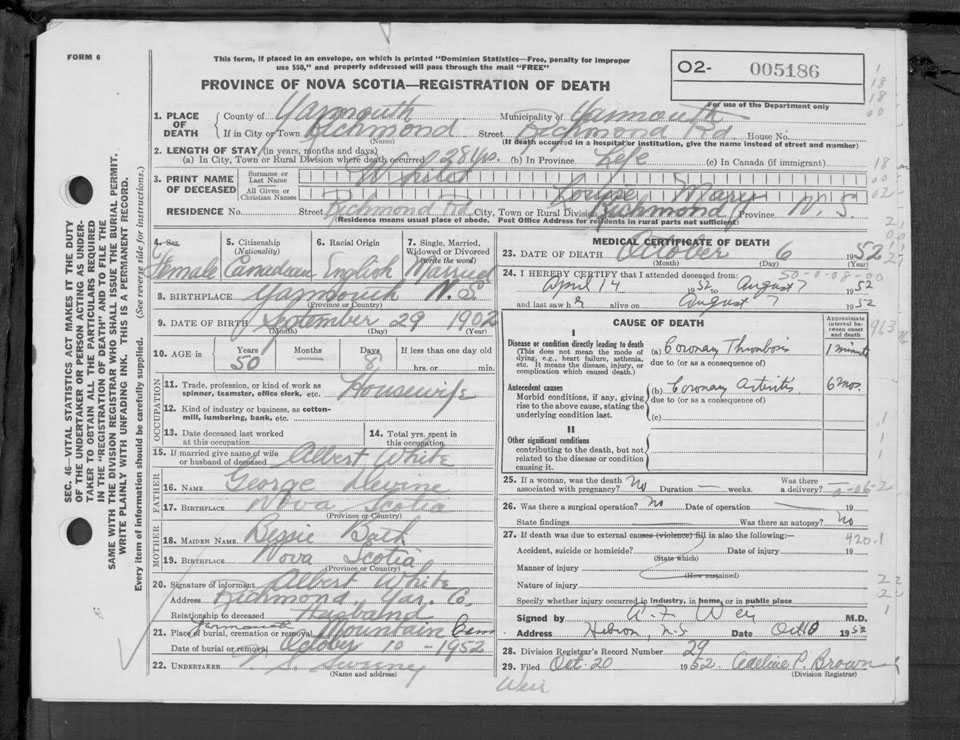 FORM 6
This form, if placed in an envelope, on which is printed "Dominion Statistics—Free, penalty for improper
use $50," and properly addressed will pass through the mail "FREE"
PROVINCE OF NOVA SCOTIA—REGISTRATION OF DEATH
O2- 005186
For use of the Department only
1. PLACE OF DEATH
County of Yarmouth Municipality of Yarmouth
If in City or Town Richmond Street Richmond Rd House No.
(Name) (If death occurred in a hospital or institution, give the name instead of street and number)
2. LENGTH OF STAY (in years, months and days)
(a) In City, Town or Rural Division where death occurred 28 Yrs. (b) In Province Life (c) In Canada (if immigrant)
3. PRINT NAME OF DECEASED
Surname or Last Name White
All Given or Christian Names Louise Mary
RESIDENCE No. Street Richmond Rd City, Town or Rural Division Richmond Province N. S.
(Residence means usual place of abode. Post Office Address for residents in rural parts not sufficient)
4. Sex 5. Citizenship (Nationality) 6. Racial Origin 7. Single, Married, Widowed or Divorced (Write the word)
Female Canadian English Married
8. BIRTHPLACE Yarmouth N. S.
(Province or Country)
9. DATE OF BIRTH September 29 1902
(Month) (Day) (Year)
10. AGE in Years Months Days If less than one day old
50 – 8 hrs. or min.
OCCUPATION
11. Trade, profession, or kind of work as spinner, teamster, office clerk, etc. Housewife
12. Kind of industry or business, as cotton-mill, lumbering, bank, etc.
13. Date deceased last worked at this occupation 14. Total yrs. spent in this occupation
15. If married give name of wife or husband of deceased Albert White
FATHER
16. NAME George Devine
17. BIRTHPLACE Nova Scotia
(Province or Country)
MOTHER
18. MAIDEN NAME Bessie Bath
19. BIRTHPLACE Nova Scotia
(Province or Country)
20. Signature of informant Albert White
Address Richmond, Yar. Co.
Relationship to deceased Husband
21. Place of burial, cremation or removal Yarmouth Mountain Cem
Date of burial or removal October 10 - 1952
22. UNDERTAKER Sweeny
(Name and address)
MEDICAL CERTIFICATE OF DEATH
23. DATE OF DEATH October 6 1952
(Month) (Day) (Year)
50-9-08-00
24. I HEREBY CERTIFY that I attended deceased from:
April 14 1952 to August 7 1952
and last saw her alive on August 7 1952
CAUSE OF DEATH
Approximate interval between onset and death
I
Disease or condition directly leading to death
(This does not mean the mode of dying, e.g., heart failure, asthenia, etc. It means the disease, injury, or complication which caused death.)
(a) Coronary Thrombosis 1 minute
due to (or as a consequence of)
Antecedent causes
Morbid conditions, if any, giving rise to the above cause, stating the underlying condition last.
(b) Coronary Arteritis 6 mos.
due to (or as a consequence of)
(c)
II
Other significant conditions
contributing to the death, but not related to the disease or condition causing it.
25. If a woman, was the death associated with pregnancy? No Duration — weeks. Was there a delivery?
26. Was there a surgical operation? No Date of operation 19
State findings Was there an autopsy? No
27. If death was due to external causes (violence) fill in also the following:— 420.1
Accident, suicide or homicide? Date of injury 19
(State which)
Manner of injury
(How sustained)
Nature of injury
Specify whether injury occurred in industry, in home, or in public place
Signed by A. F. Weir M.D.
Address Hebron, N.S. Date Oct 10 1952
28. Division Registrar's Record Number 29
29. Filed Oct. 20 1952 Adeline P. Brown
(Division Registrar)
Weir
SEC. 46—VITAL STATISTICS ACT MAKES IT THE DUTY
OF THE UNDERTAKER OR PERSON ACTING AS UNDER-
TAKER TO OBTAIN ALL THE PARTICULARS REQUIRED
IN THE "REGISTRATION OF DEATH" AND TO FILE THE
SAME WITH THE DIVISION REGISTRAR WHO SHALL ISSUE THE BURIAL PERMIT.
WRITE PLAINLY WITH UNFADING INK. THIS IS A PERMANENT RECORD.
Every item of information should be carefully supplied. (See reverse side for instructions.)